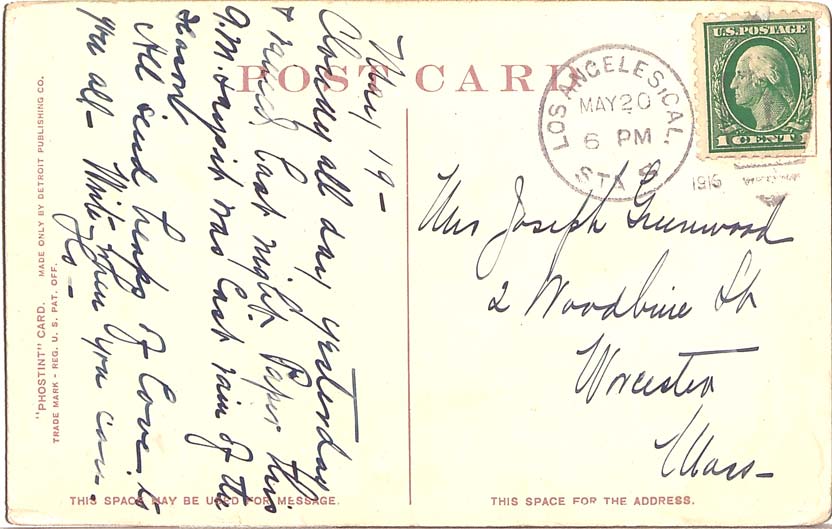 POST CARD
"PHOSTINT" CARD. MADE ONLY BY DETROIT PUBLISHING CO.
TRADE MARK - REG. U. S. PAT. OFF.
May 19 -
Cloudy all day yesterday
& rained last night. Paper this
A.M. says it was last rain of the
season
All send heaps of love to
you all - Write when you can -
THIS SPACE MAY BE USED FOR MESSAGE.
LOS ANGELES, CAL.
MAY 20
6 PM
STA
1916
U.S. POSTAGE
1 CENT
Mrs Joseph Greenwood
2 Woodbine St
Worcester
Mass -
THIS SPACE FOR THE ADDRESS.